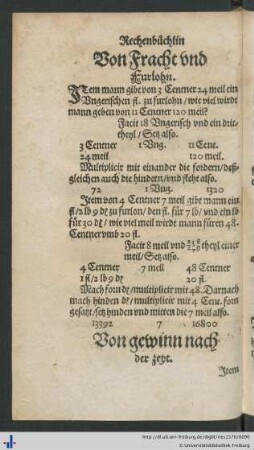 Rechenbüchlin
Von Fracht vnd
Furlohn.
ITem mann gibt von 3 Centner 24 meil ein
Vngerischen fl. zu furlohn / wie viel wirdt
mann geben von 11 Centner 120 meil?
Facit 18 Vngerisch vnd ein drit-
theyl / Setz also.
3 Centner 1 Vng. 11 Cent.
24 meil 120 meil.
Multiplicir mit einander die fordern / deß-
gleichen auch die hindern / vnd steht also.
72 1 Vng. 1320
Item von 4 Centner 7 meil gibt mann ein
fl / 2 lb 9 ₰ zu furlon / den fl. für 7 lb / vnd ein lb
für 30 ₰ / wie viel meil wirdt mann füren 48.
Centner vmb 20 fl.
Facit 8 meil vnd theyl einer
meil / Setz also.
4 Centner 7 meil 48 Centner
1 fl / 2 lb 9 ₰ 20 fl.
Mach forn ₰ / multiplicir mit 48. Darnach
mach hinden ₰ / multiplicir mit 4 Cent. forn
gesatzt / setz hinden vnd mitten die 7 meil also.
13392 7 16800
Von gewinn nach
der zeyt.
Item
http://dl.ub.uni-freiburg.de/diglit/ries1578/0090
© Universitätsbibliothek Freiburg